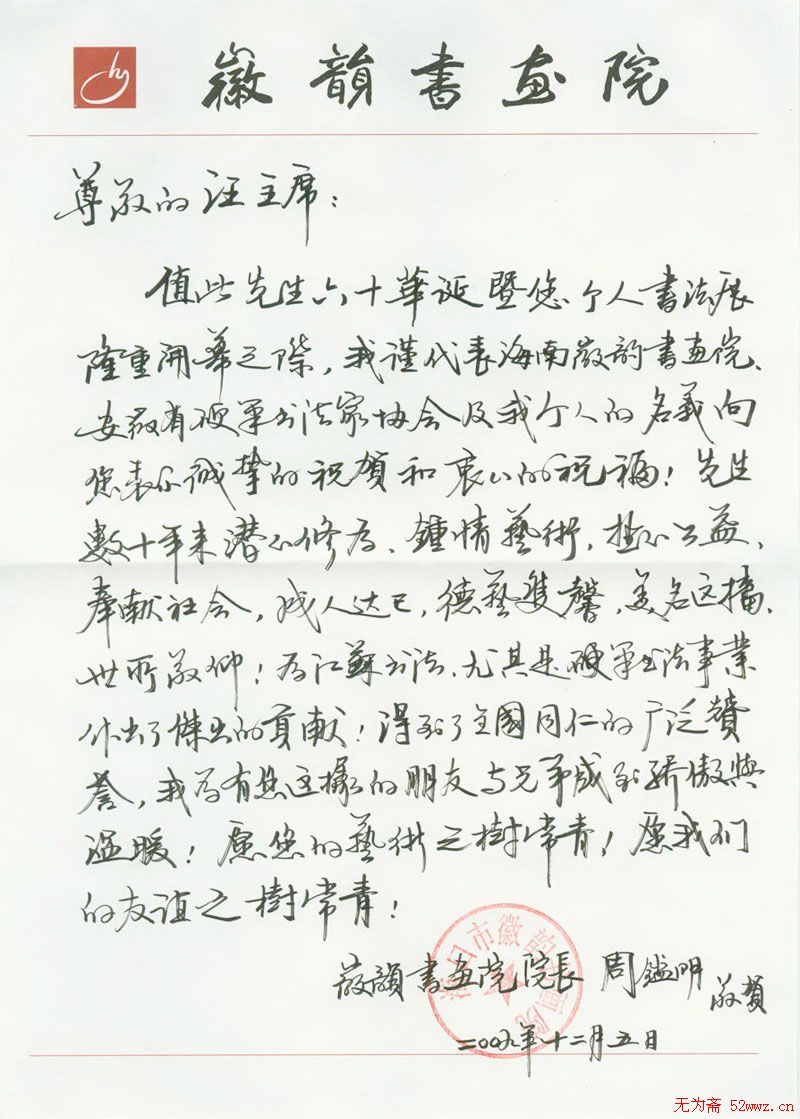 hy
徽韻書画院
尊敬的汪主席：
值此先生六十華诞暨您个人書法展
隆重開幕之際，我谨代表海南徽韵書画院、
安徽省硬笔书法家协会及我个人的名義向
您表示诚挚的祝賀和衷心的祝福！先生
數十年来潜心修为、鍾情藝術，热心公益、
奉献社会，成人达己，德藝雙馨，美名远播、
世所敬仰！为江蘇书法、尤其是硬笔书法事業
作出了傑出的貢献！得到了全國同仁的广泛贊
誉，我为有您这樣的朋友与兄弟感到骄傲與
温暖！愿您的藝術之樹常青！愿我们
的友谊之樹常青！
海口市徽韵書画院
徽韻書画院院長 周 明 敬賀
二00九年十二月五日
无为斋 52wwz.cn